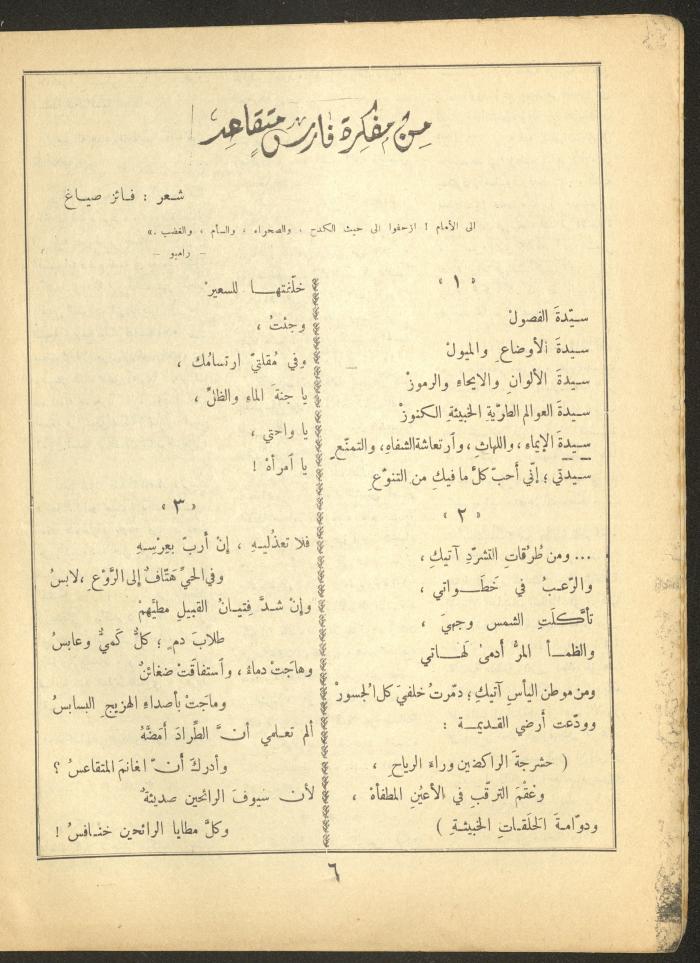 من مفكرة فارس متقاعد
شعر : فائز صياغ
الى الأمام ! ازحفوا الى حيث الكدح ، والصحراء ، والسأم ، والغضب .»
– رامبو –
« ١ »
سيّدةَ الفصولْ
سيدةَ الأوضاع والميولْ
سيدةَ الألوانِ والايحاءِ والرموزْ
سيدةَ العوالم الطريّةِ الخبيئةِ الكنوزْ
سيدةَ الإيماءِ ، واللهاثِ ، وأرتعاشة الشفاهِ ، والتمنّعِ
سيدتي ؛ إنّي أحبّ كلَّ ما فيكِ من التنوّعِ
« ٢ »
... ومن طُرُقاتِ التشرّدِ آتيكِ ،
والرّعبُ في خَطَواتي ،
تأكّلَتِ الشمس وجهيَ ،
والظمأ المرُّ أدمىٰ لَهَاتي
ومن موطن اليأسِ آتيكِ ؛ دمّرتُ خلفيَ كل الجسورْ
وودّعت أرضي القديمة :
( حشرجةَ الراكضين وراءَ الرياحِ ،
وعُقْمَ الترقّبِ في الأعيُنِ المطفأهْ ،
ودوّامةَ الحلَقاتِ الخبيثةِ )
خلّفتها للسعيرْ
وجئتُ ،
وفي مُقلتيّ ارتسامُك ،
يا جنةَ الماءِ والظلِّ ،
يا واحتي ،
يا أمرأهْ !
« ٣ »
فلا تعذُليهِ ، إنْ أربّ بعِرْسِهِ
وفي الحيِّ هَتّافٌ إلى الرَّوْعِ ، لابسُ
وإنْ شدَّ فِتيانُ القبيلِ مطيَّهمْ
طلابَ دمٍ ؛ كلٌّ كَميٌّ وعابسُ
وهاجتْ دماءٌ ، وأستفاقتْ ضغائنٌ
وماجتْ بأصداءِ الهزيجِ البسابسُ
ألم تعلمي أنَّ الطِّرادَ أمَضَّهُ
وأدركَ أنّ اغانمَ المتقاعسُ ؟
لأن سيوفَ الرائحين صديئةٌ
وكلَّ مطايا الرائحين خنافسُ !
٦